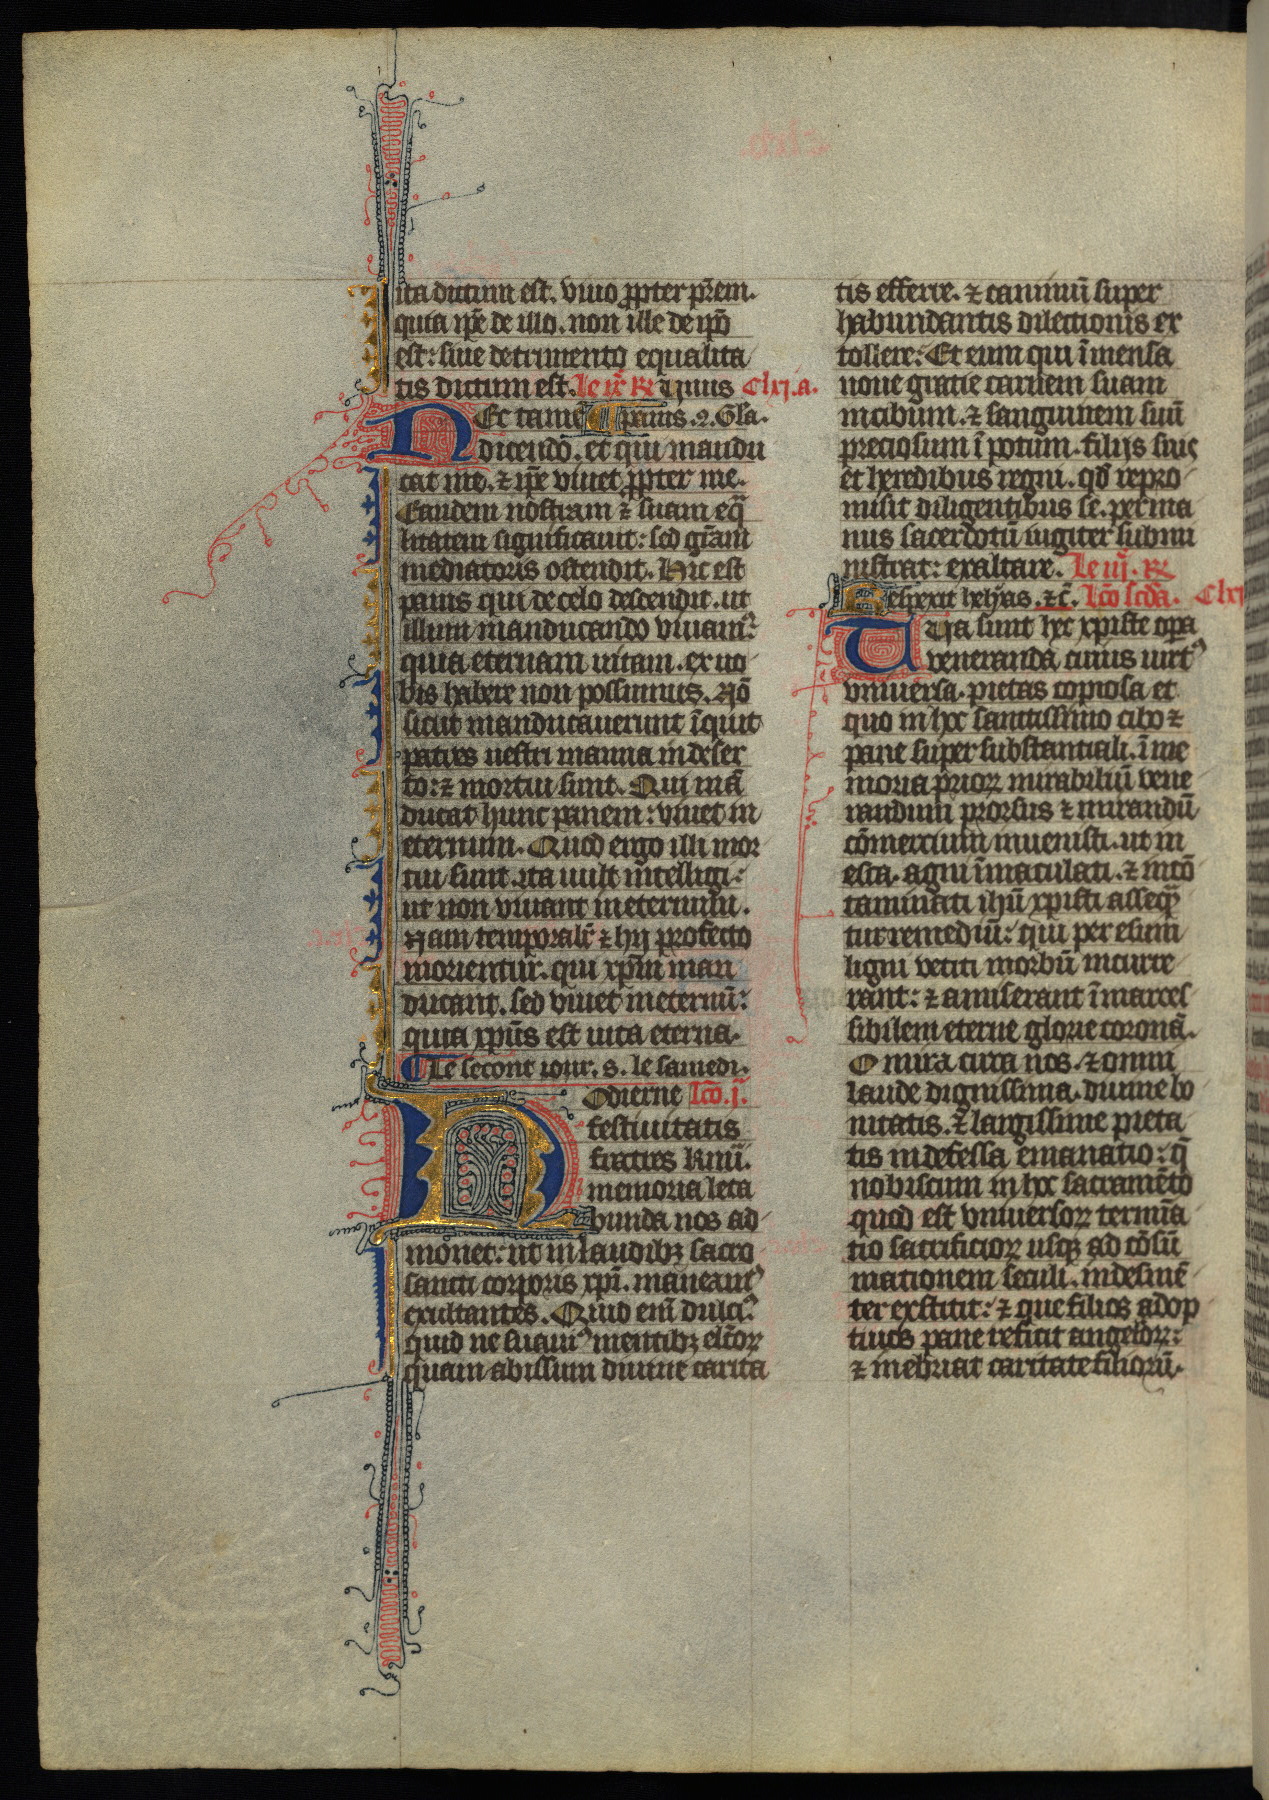 ita dictum est. viuo ꝓpter p̃rem.
quia ip̃e de illo. non ille de ip̃o
est: siue detrimento equalita
tis dictum est. Le ix̃ ℞ Vnus Clxj.a.
NEc tamẽ ¶ panis .2. Gl̃a.
dicendo. et qui mandu
cat me. ⁊ ip̃e viuet ꝓpter me.
Eandem nostram ⁊ suam eq̃
litatem significauit: sed gr̃am
mediatoris ostendit. Hic est
panis qui de celo descendit. ut
illum manducando viuamꝰ
quia eternam uitam. ex no
bis habere non possumus. Nõ
sicut manducauerunt ĩquit
patres uestri manna in deser
to: ⁊ mortui sunt. Qui mã
ducat hunc panem: viuet in
eternum. Quod ergo illi mor
tui sunt. ita uult intelligi:
ut non viuant in eternum.
Nam temporalr̃ ⁊ hij profecto
morientur. qui xp̃m man
ducant. sed viuet in eternũ:
quia xp̃us est uita eterna.
¶ Le secont iour. s. le samedi.
HOdierne Lc̃o. j.
festiuitatis
fratres kmi.
memoria leta
bunda nos ad
monet: ut in laudibꝫ sacro
sancti corporis xp̃i. maneamꝰ
exultantes. Quid enĩ dulciꝰ
quid ne suauiꝰ mentibꝫ elc̃oꝝ
quam abissum diuine carita
tis efferre. ⁊ caminũ super
habundantis dilectionis ex
tollere: Et eum qui ĩmensa
noue gratie carnem suam
in cibum. ⁊ sanguinem suũ
preciosum ĩ potum. filijs suis
et heredibus regni. qd̃ repro
misit diligentibus se. per ma
nus sacerdotũ iugiter submi
nistrat: exaltare. Le iij. ℞
Respexit helyas. ⁊c̃. Lc̃o sc̃da. Clxj
VEra sunt hec xpiste opa
veneranda cuius uirtꝰ
vniuersa. pietas copiosa et
quo in hoc sanctissimo cibo ⁊
pane super substantiali. ĩ me
moria prioꝝ mirabiliũ vene
randum prorsus ⁊ mirandũ
cõmercium inuenisti. ut in
esca. agni ĩmaculati. ⁊ incõ
taminati ihũ xpisti asseqꝰ̃
tur remediũ: qui per esum
ligni vetiti morbũ incurre
rant: ⁊ amiserant ĩ marces
sibilem eterne glorie coronã.
O mira circa nos. ⁊ omni
laude dignissima. diuine bo
nitatis. ⁊ largissime pieta
tis indefessa emanatio: q̃
nobiscum in hoc sacramẽto
quod est vniuersoꝝ termĩa
tio sacrificioꝝ usqꝫ ad cõsũ
mationem seculi. indesinẽ
ter exstitit: ⁊ que filios adop
tiuos pane reficit angeloꝝ:
⁊ inebriat caritate filiorũ.